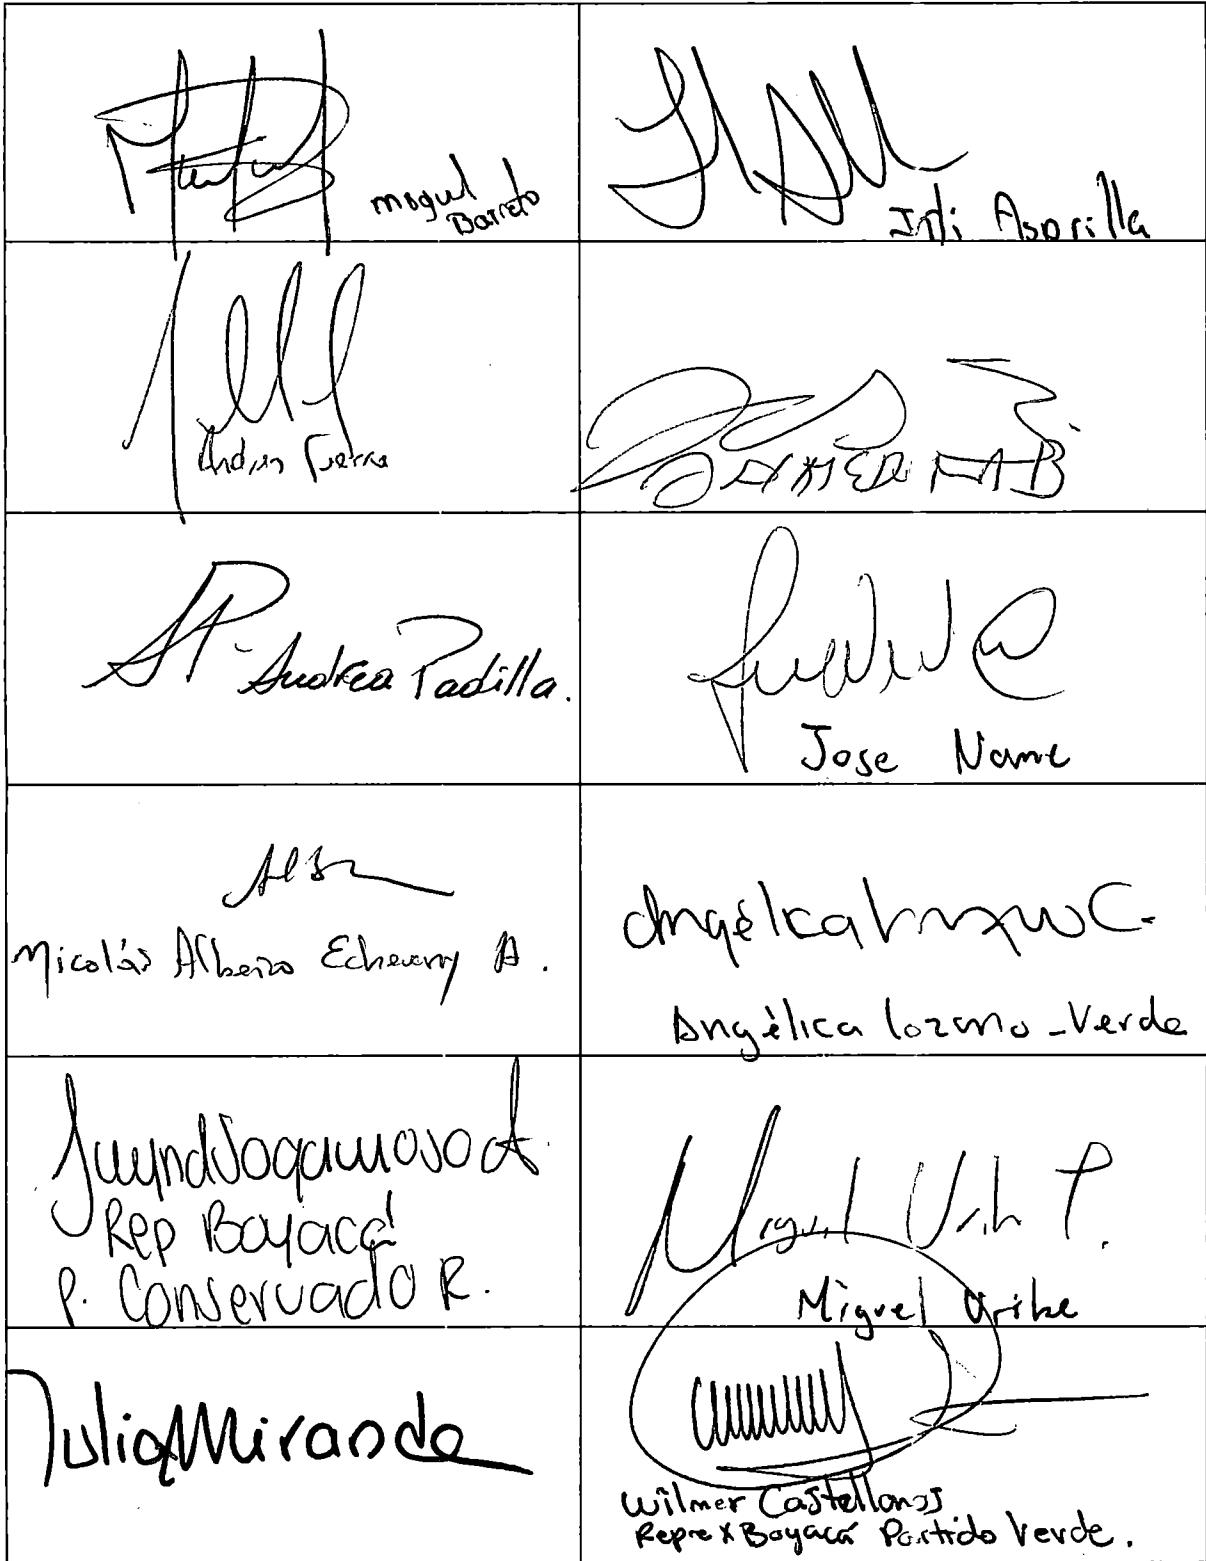 Miguel
Barreto
Inti Asprilla
Andrés Guerra
Andrea Padilla.
Jose Name
Nicolás Albeiro Echeverry A.
Angélica Lozano C.
Angélica Lozano - Verde
Ingrid Sogamoso A.
Rep Boyacá
P. Conservador.
Miguel Uribe T.
Miguel Uribe
Julia Miranda
Wilmer Castellanos
Repre X Boyacá Partido Verde.